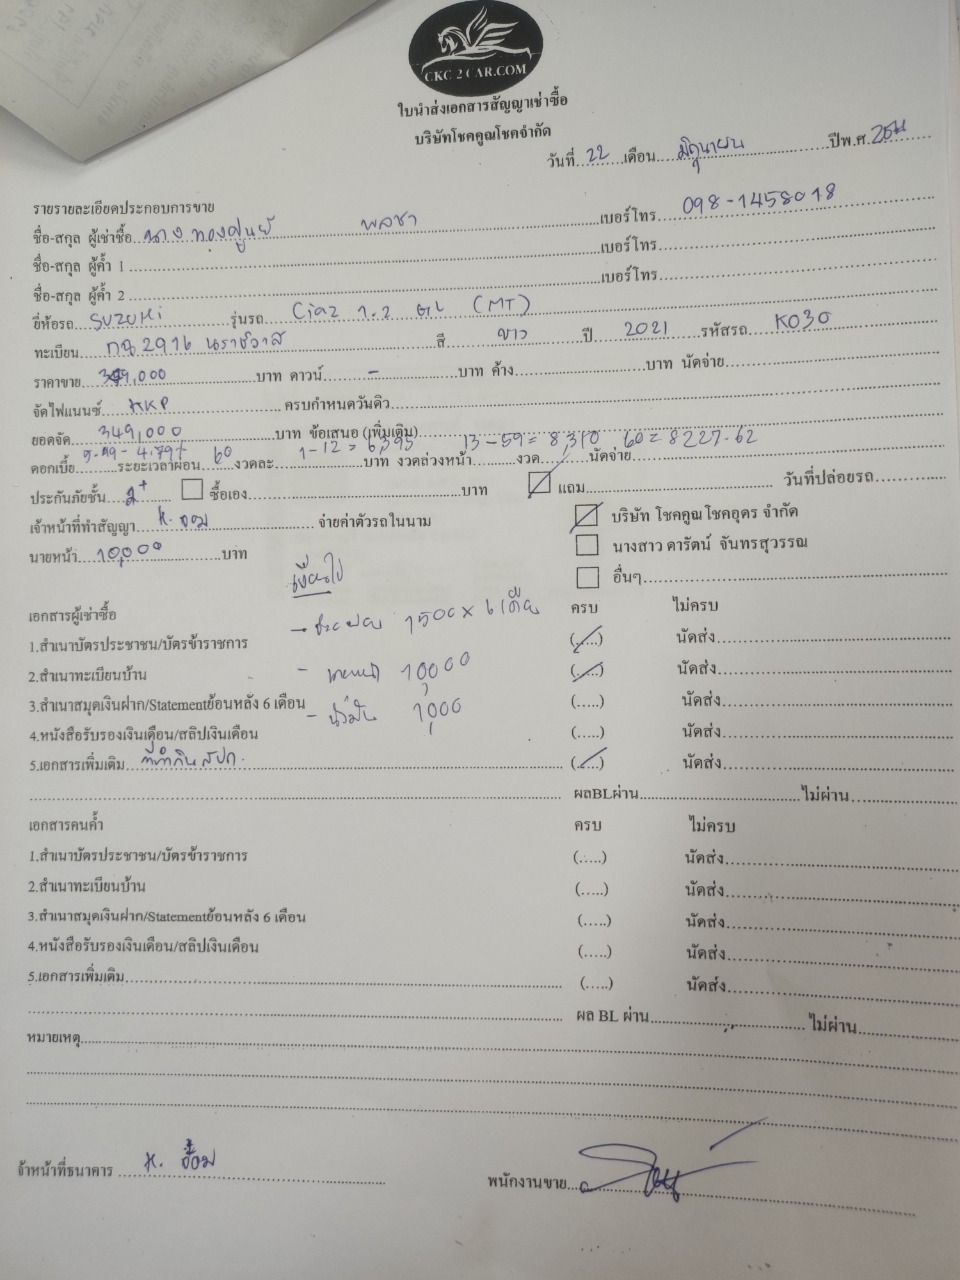 CKC 2 CAR.COM
ใบนำส่งเอกสารสัญญาเช่าซื้อ
บริษัทโชคคูณโชคจำกัด
วันที่ 22 เดือน มิถุนายน ปีพ.ศ.
รายรายละเอียดประกอบการขาย
ชื่อ-สกุล ผู้เช่าซื้อ นาง พลชา เบอร์โทร 098-1458018
ชื่อ-สกุล ผู้ค้ำ 1 เบอร์โทร
ชื่อ-สกุล ผู้ค้ำ 2 เบอร์โทร
ยี่ห้อรถ SUZUKI รุ่นรถ Ciaz 1.2 GL (MT)
ทะเบียน 2916 นราธิวาส สี ขาว ปี 2021 รหัสรถ K030
ราคาขาย บาท ดาวน์ - บาท ค้าง บาท นัดจ่าย
จัดไฟแนนซ์ KKP ครบกำหนดวันคิว
ยอดจัด 349,000 บาท ข้อเสนอ (เพิ่มเติม)
ดอกเบี้ย ระยะเวลาผ่อน 60 งวดละ 1-12 = 6,395 บาท งวดล่วงหน้า งวด นัดจ่าย 13-59 = 8,310 60 = 8227.62
ประกันภัยชั้น 2+ ซื้อเอง บาท แถม วันที่ปล่อยรถ
เจ้าหน้าที่ทำสัญญา จ่ายค่าตัวรถในนาม บริษัท โชคคูณโชคอุดร จำกัด
นายหน้า 10,000 บาท นางสาว ดารัตน์ จันทรสุวรรณ
อื่นๆ
เงื่อนไข
เอกสารผู้เช่าซื้อ ครบ ไม่ครบ
- ช่วยผ่อน 1500 x 6 เดือน
1.สำเนาบัตรประชาชน/บัตรข้าราชการ (.....) นัดส่ง
2.สำเนาทะเบียนบ้าน - นายหน้า 10,000 (.....) นัดส่ง
3.สำเนาสมุดเงินฝาก/Statementย้อนหลัง 6 เดือน - น้ำมัน 1,000 (.....) นัดส่ง
4.หนังสือรับรองเงินเดือน/สลิปเงินเดือน (.....) นัดส่ง
5.เอกสารเพิ่มเติม ที่ทำกิน สปก. (.....) นัดส่ง
ผลBLผ่าน ไม่ผ่าน
เอกสารคนค้ำ ครบ ไม่ครบ
1.สำเนาบัตรประชาชน/บัตรข้าราชการ (.....) นัดส่ง
2.สำเนาทะเบียนบ้าน (.....) นัดส่ง
3.สำเนาสมุดเงินฝาก/Statementย้อนหลัง 6 เดือน (.....) นัดส่ง
4.หนังสือรับรองเงินเดือน/สลิปเงินเดือน (.....) นัดส่ง
5.เอกสารเพิ่มเติม (.....) นัดส่ง
ผล BL ผ่าน ไม่ผ่าน
หมายเหตุ
จ้าหน้าที่ธนาคาร K. อ้อม
พนักงานขาย